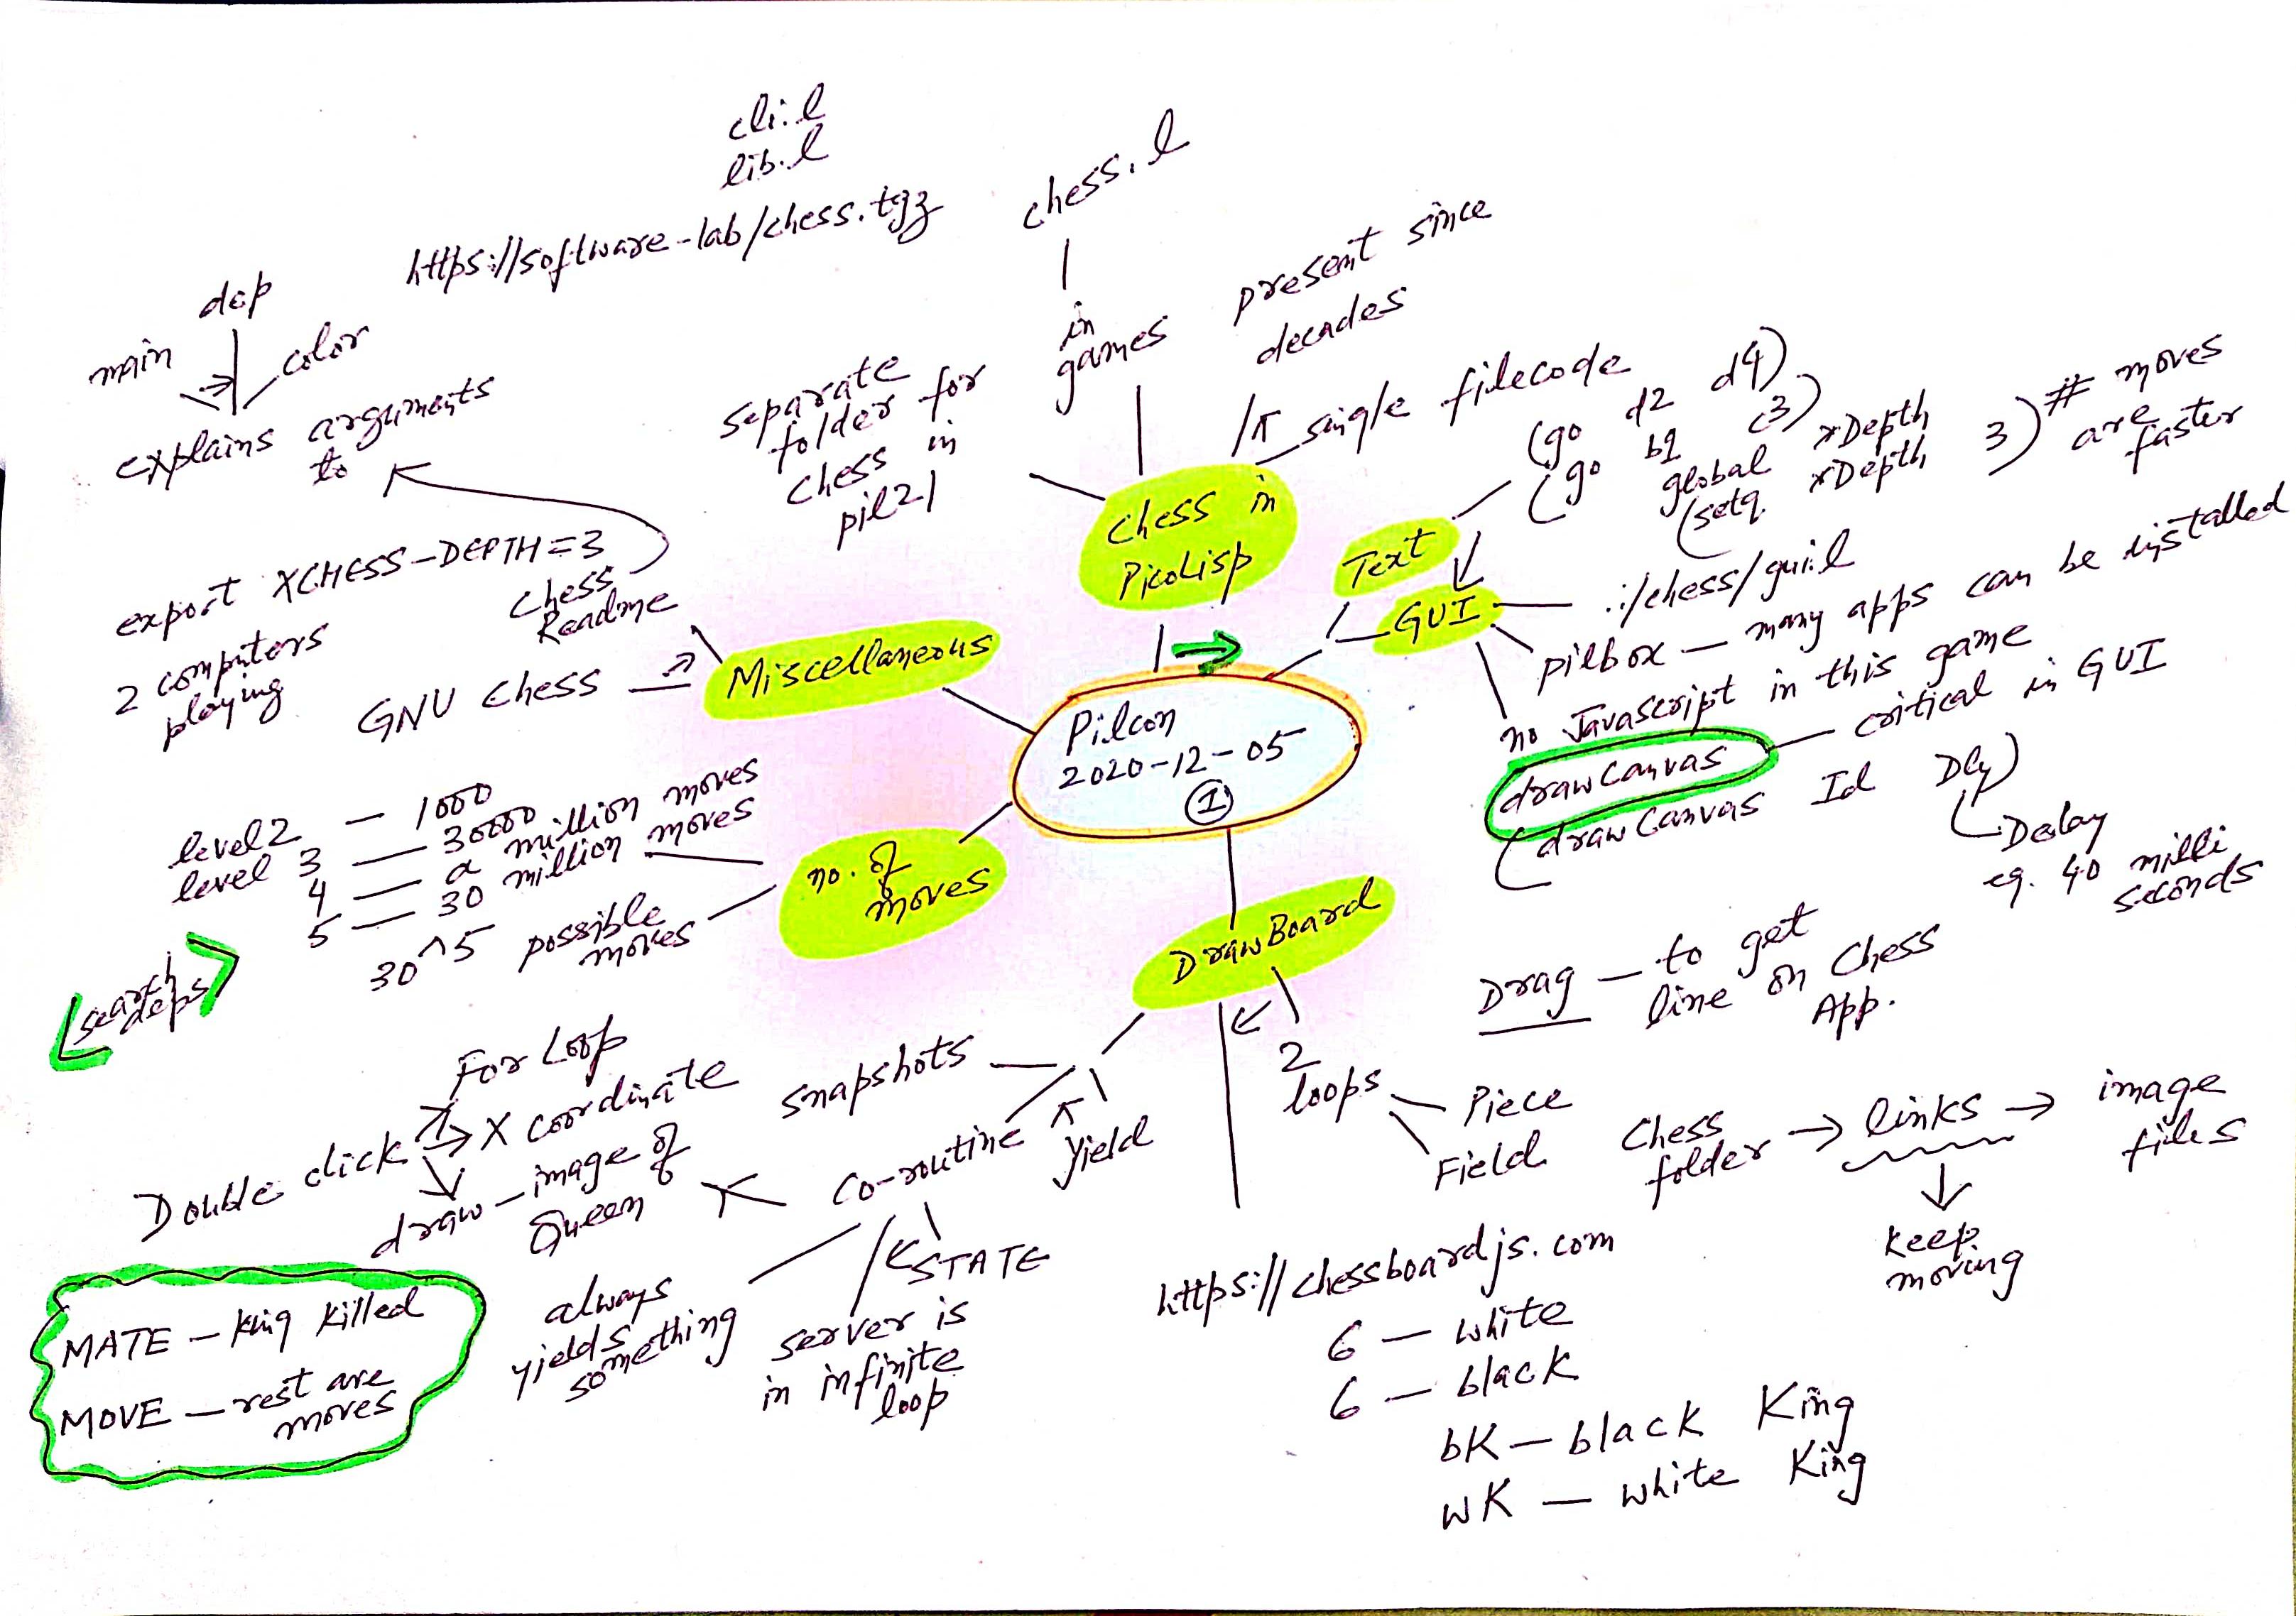 cli.l
lib.l
https://software-lab/chess.tgz
chess.l
in
games
present since
decades
single filecode
separate
folder for
chess in
pil21
Chess in
PicoLisp
main
dep
color
explains arguments
to
export XCHESS-DEPTH=3
Chess
Readme
2 computers
playing
GNU Chess
Miscellaneous
Text
(go d2 d4)
(go b1 c3)
global *Depth
(setq *Depth 3) # moves
are
faster
GUI
./chess/gui.l
pilbox — many apps can be installed
no Javascript in this game
drawCanvas — critical in GUI
(drawCanvas Id Dly)
Delay
eg. 40 milli
seconds
Pilcon
2020-12-05
1
level 2 — 1000
level 3 — 30000
4 — a million moves
5 — 30 million moves
30^5 possible
moves
search
deps
no. of
moves
DrawBoard
Drag — to get
line on Chess
App.
2
loops
Piece
Field
Chess
folder → links → image
files
keep
moving
https://chessboardjs.com
6 — white
6 — black
bK — black King
wK — white King
snapshots
Yield
Co-routine
STATE
server is
in infinite
loop
always
yields
something
For Loop
Double click → X coordinate
draw — image of
Queen
MATE — king killed
MOVE — rest are
moves